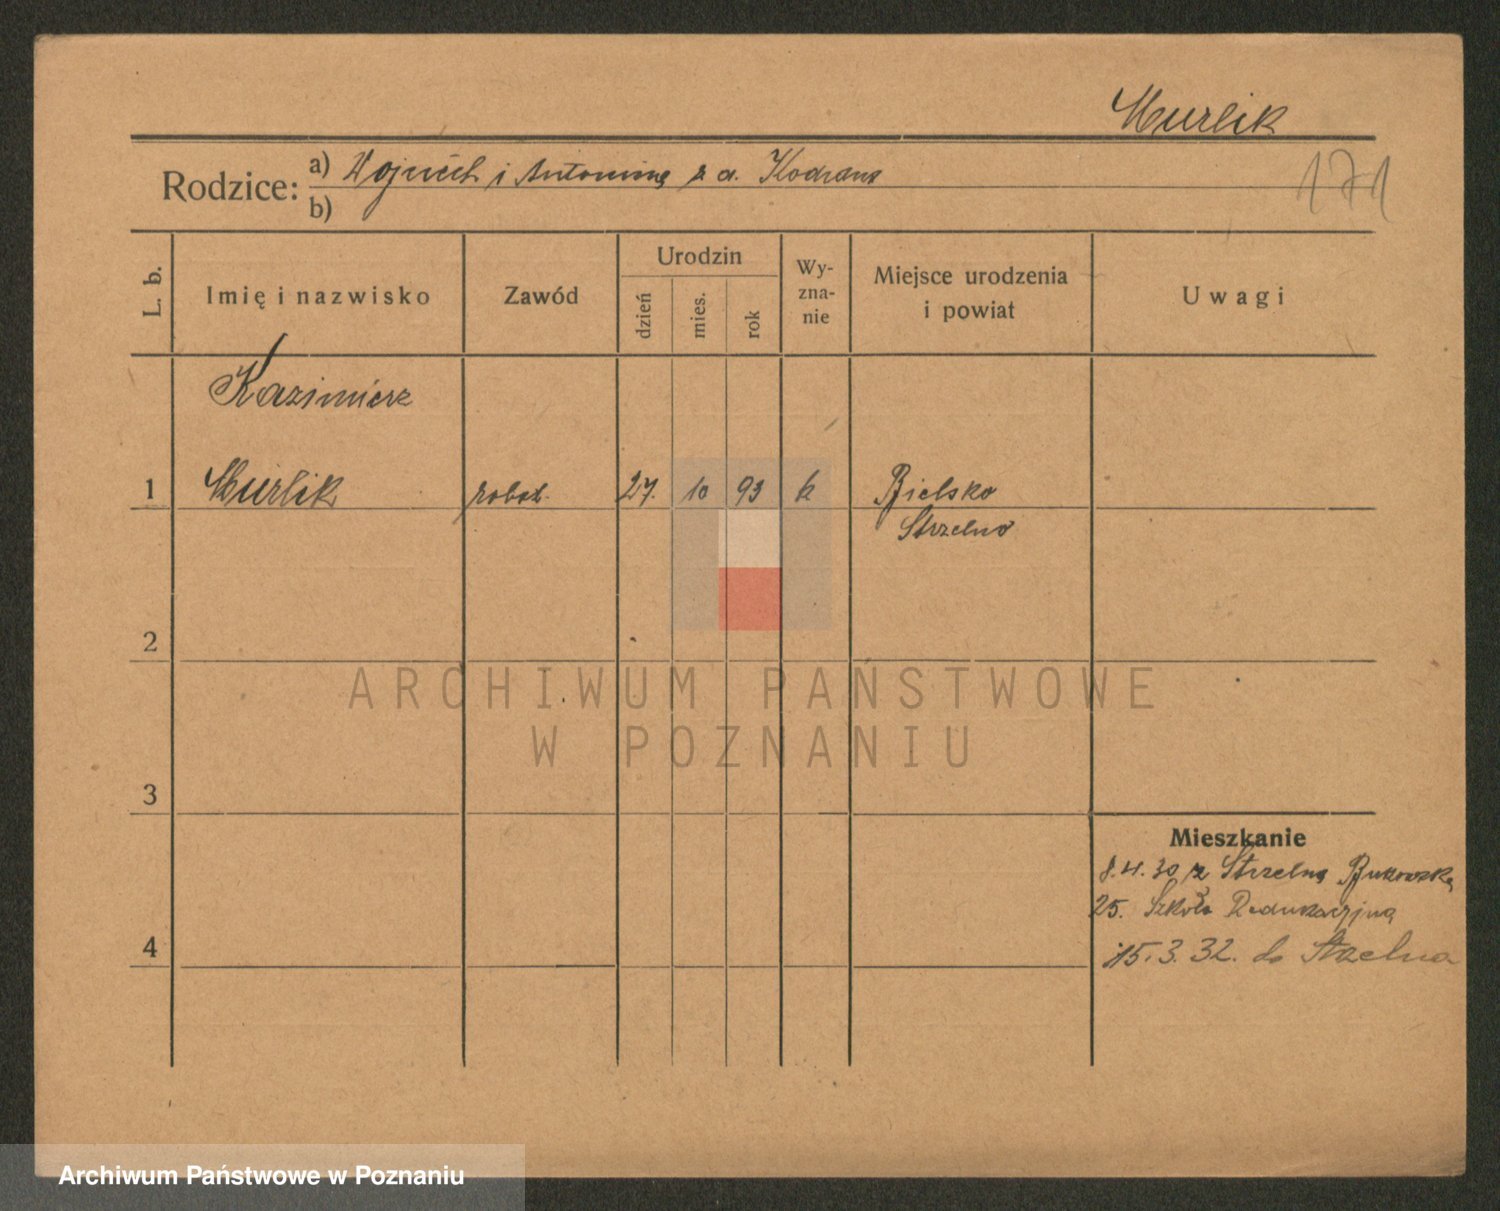 Murlik
Rodzice: a) Wojciech i Antonina z d.
b)
171
L. b.
Imię i nazwisko
Zawód
Urodzin
dzień
mies.
rok
Wy-
zna-
nie
Miejsce urodzenia
i powiat
Uwagi
Kazimierz
1 Murlik robot. 27. 10 93 k Bielsko
Strzelno
2
3
4
ARCHIWUM PAŃSTWOWE
W POZNANIU
Mieszkanie
8.4.30 z Strzelna Bukowska
25. Szkoła
15.3.32. do Strzelna
Archiwum Państwowe w Poznaniu